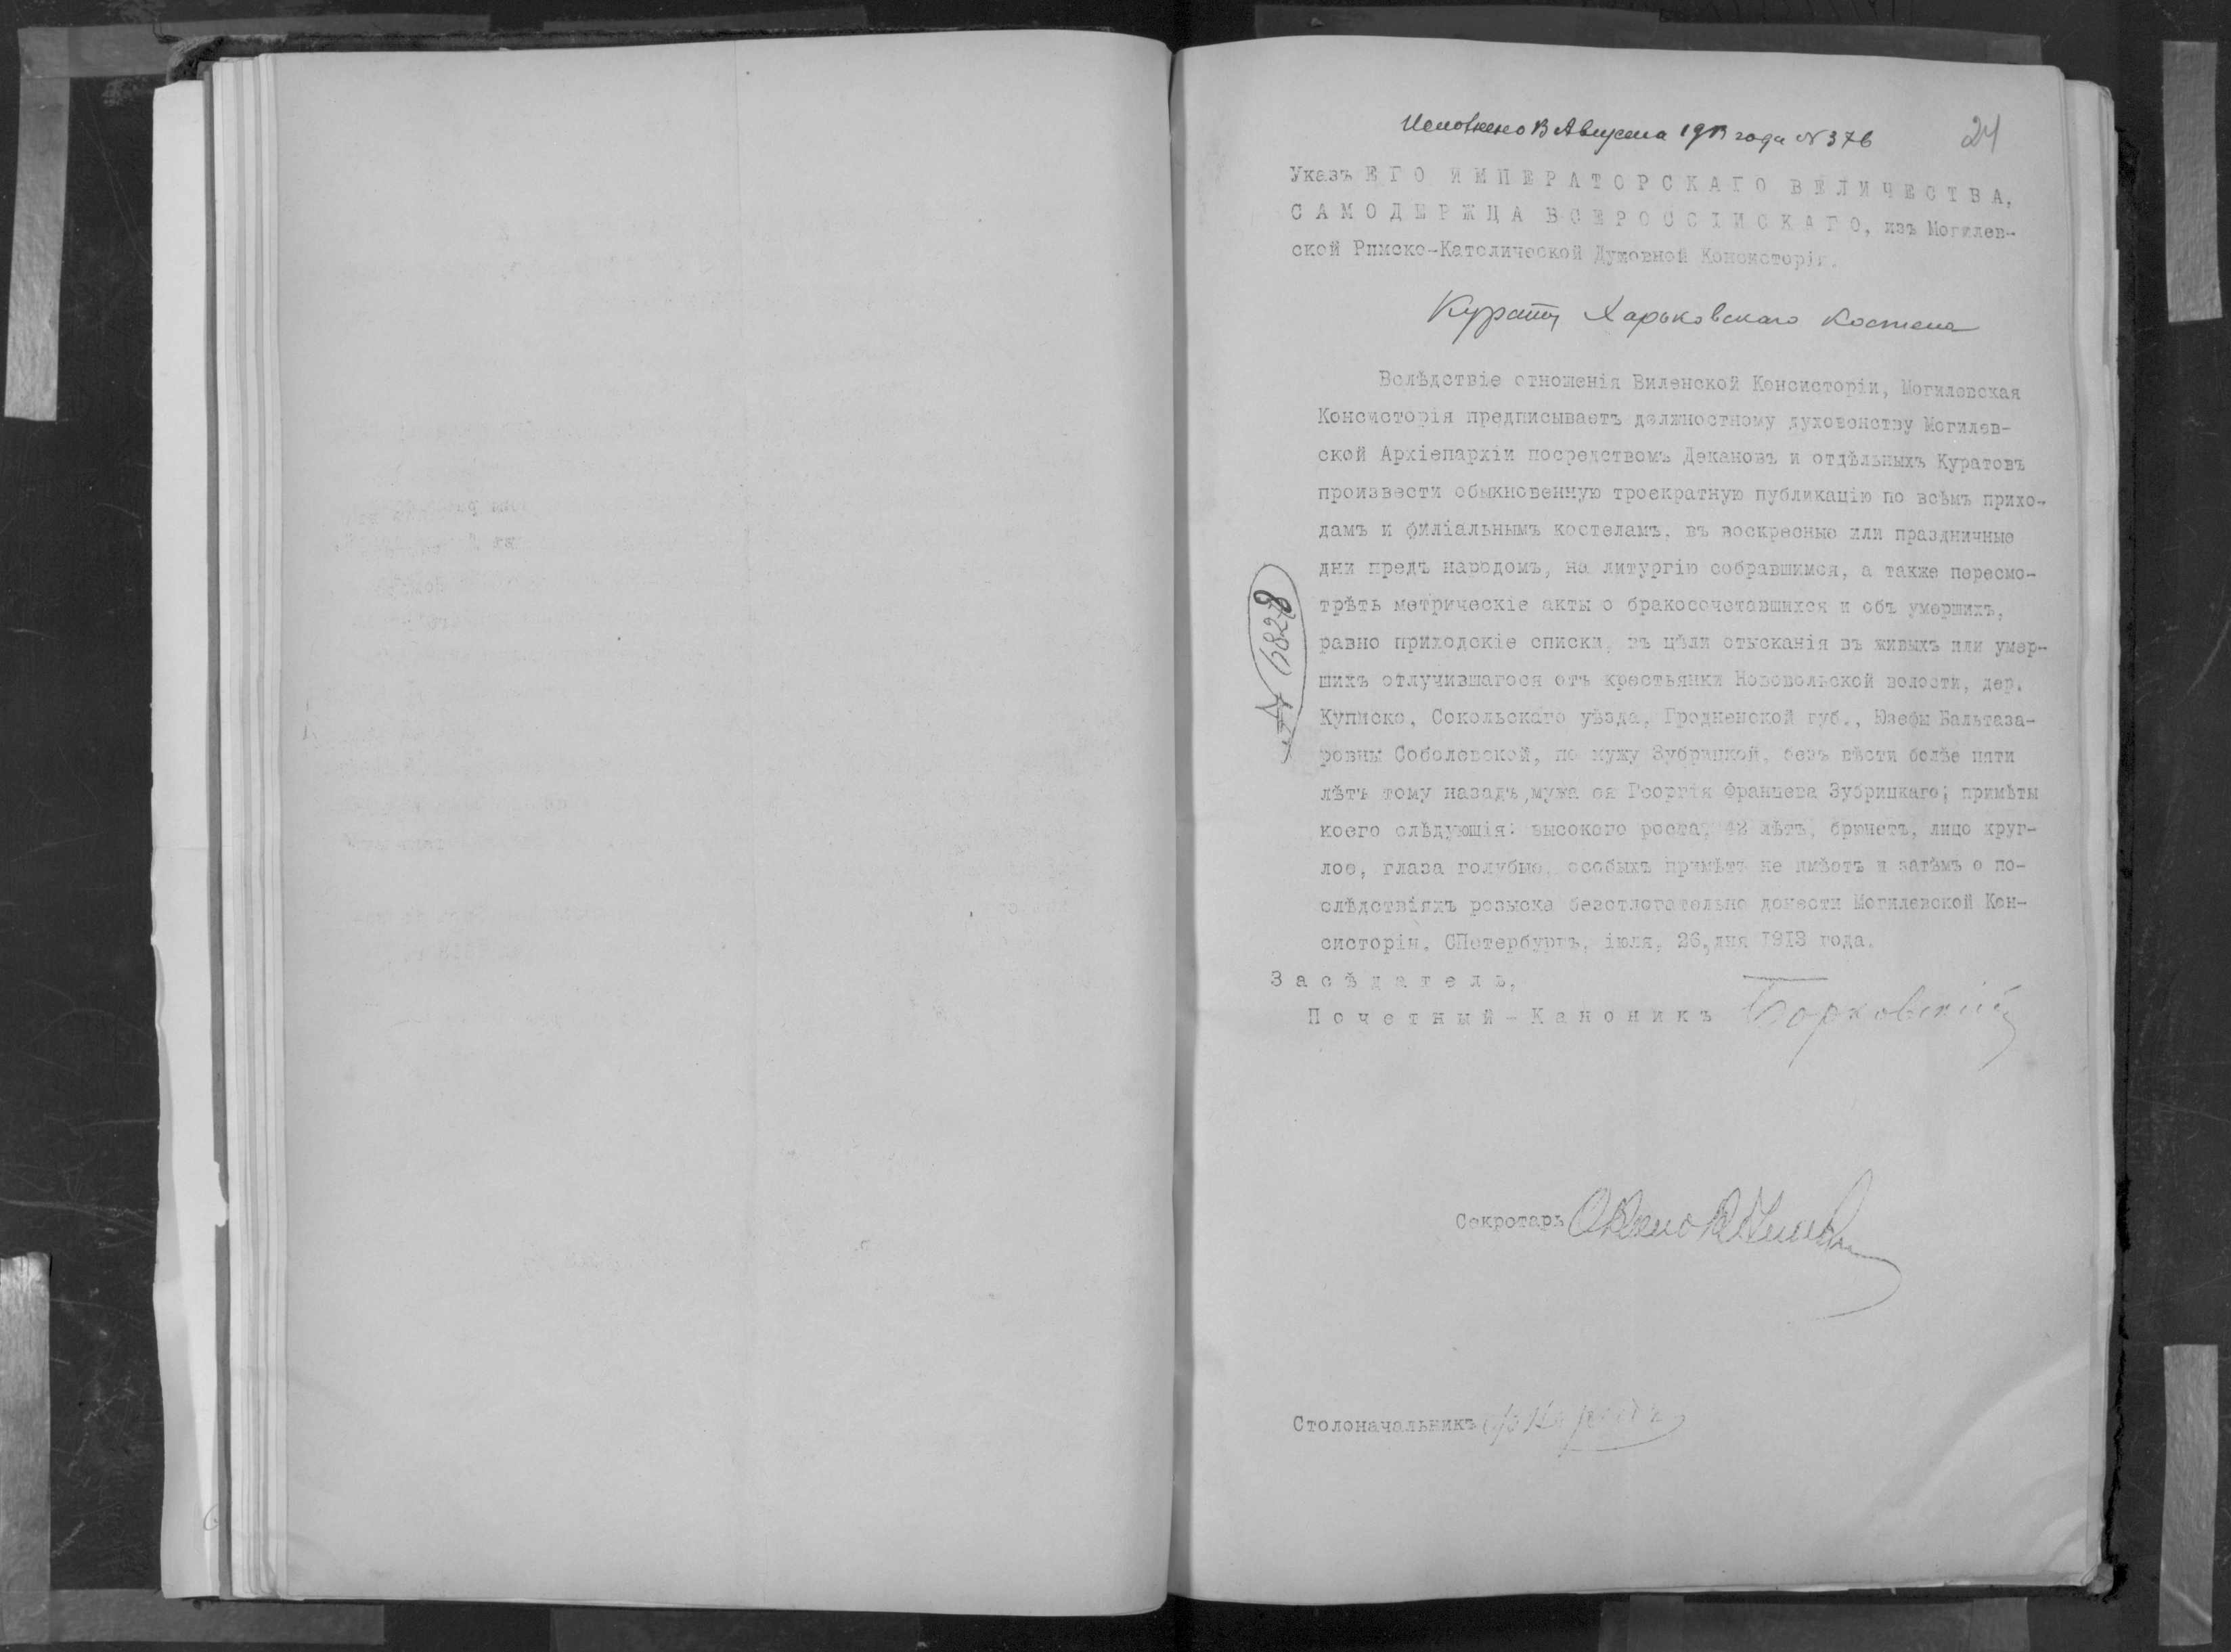 Исполнено 13 Августа 1913 года № 376
24
Указъ ЕГО ИМПЕРАТОРСКАГО ВЕЛИЧЕСТВА,
САМОДЕРЖЦА ВСЕРОССІЙСКАГО, изъ Могилев-
ской Римско-Католической Духовной Консисторіи.
Курату Харьковскаго Костела
Вслѣдствіе отношенія Виленской Консисторіи, Могилевская
Консисторія предписываетъ должностному духовенству Могилев-
ской Архіепархіи посредствомъ Декановъ и отдѣльныхъ Куратовъ
произвести обыкновенную троекратную публикацію по всѣмъ прихо-
дамъ и филіальнымъ костеламъ, въ воскресные или праздничные
дни предъ народомъ, на литургію собравшимся, а также пересмо-
трѣть метрическіе акты о бракосочетавшихся и объ умершихъ,
равно приходскіе списки, въ цѣли отысканія въ живыхъ или умер-
шихъ отлучившагося отъ крестьянки Нововольской волости, дер.
Куписко, Сокольскаго уѣзда, Гродненской губ., Юзефы Бальтаза-
ровны Соболевской, по мужу Зубрицкой, безъ вѣсти болѣе пяти
лѣтъ тому назадъ, мужа ея Георгія Францева Зубрицкаго; примѣты
коего слѣдующія: высокого роста, 42 лѣтъ, брюнетъ, лицо круг-
лое, глаза голубые, особыхъ примѣтъ не имѣетъ и затѣмъ о по-
слѣдствіяхъ розыска безотлогательно донести Могилевской Кон-
систоріи. СПетербургъ, іюля, 26, дня 1913 года.
№ 6828
Засѣдатель,
Почетный-Каноникъ Борковскій
Секротарь
Столоначальникъ